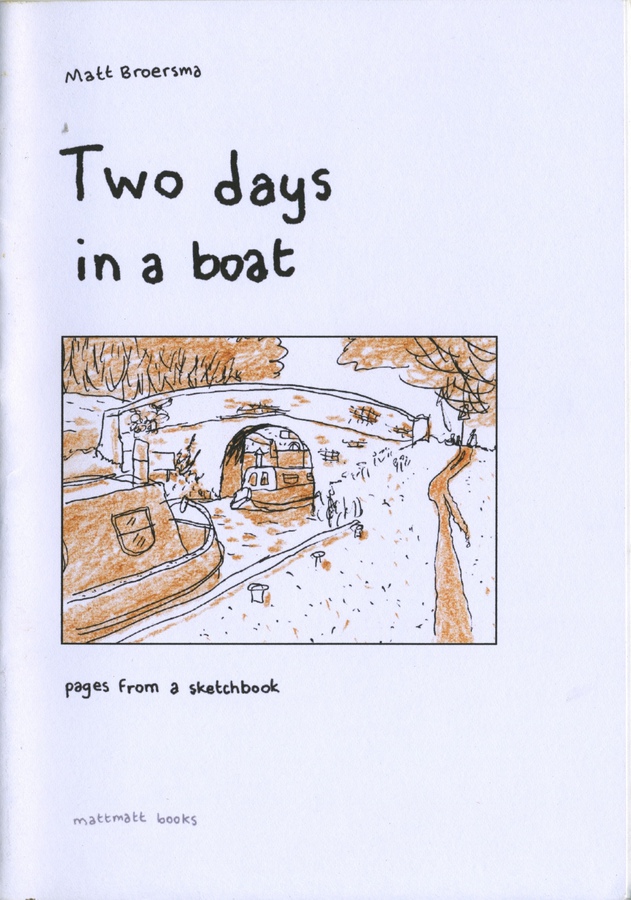 Matt Broersma
Two days
in a boat
pages from a sketchbook
mattmatt books